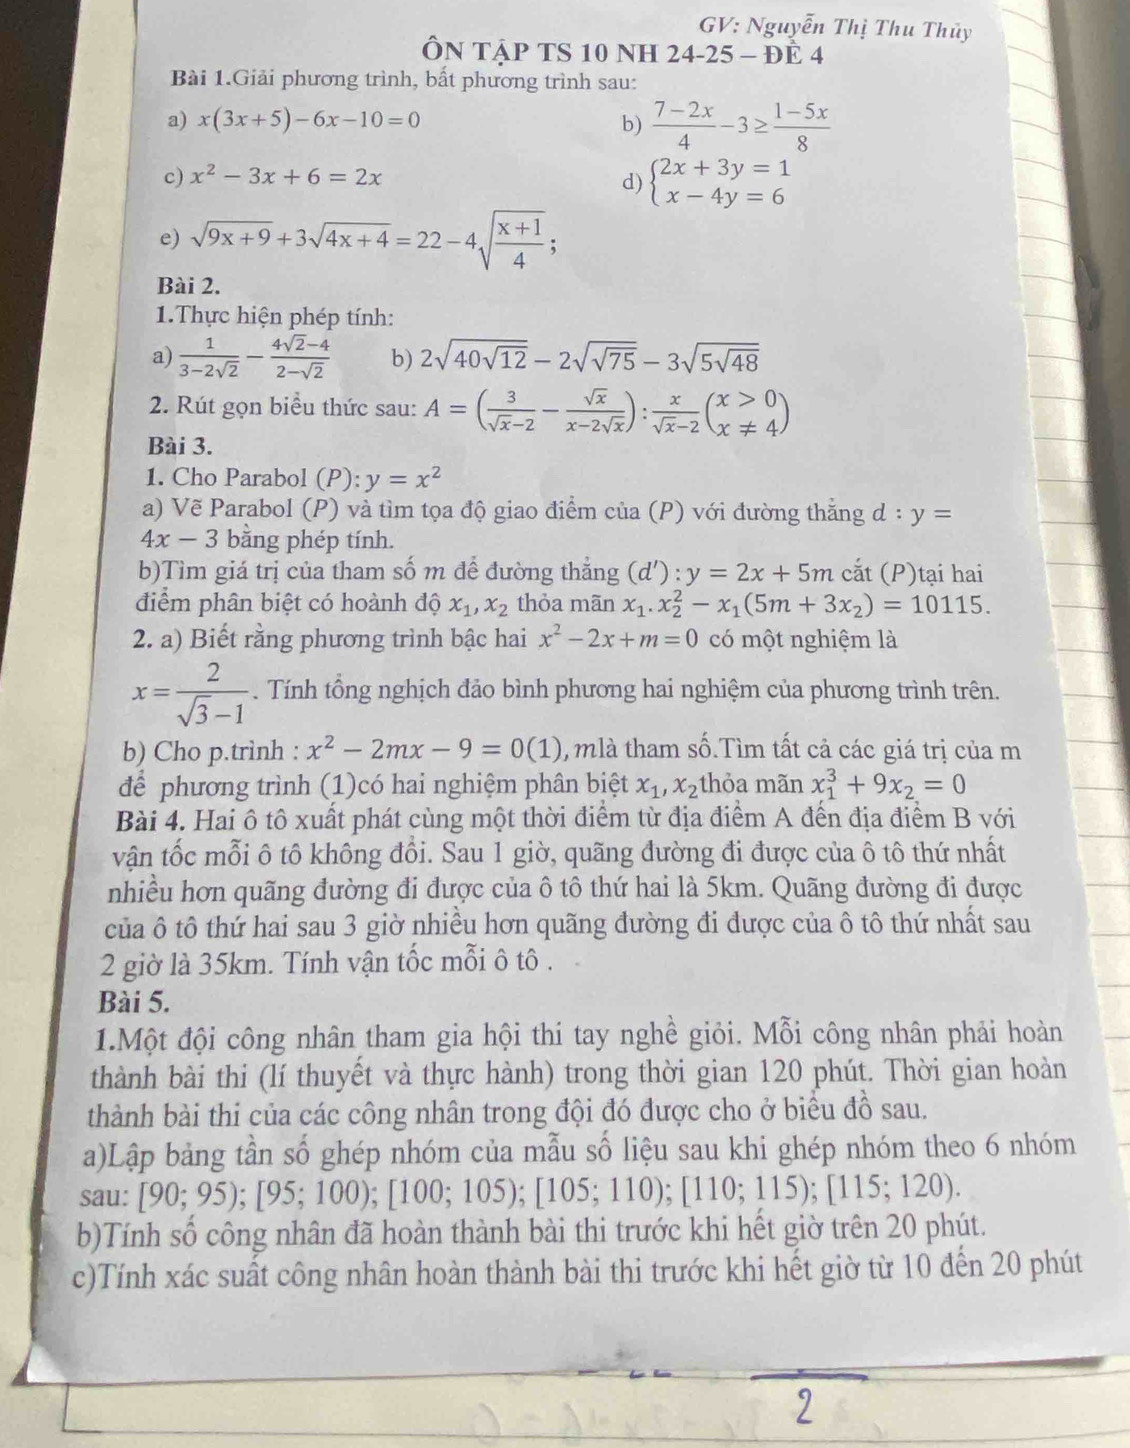 GV: Nguyễn Thị Thu Thủy
ÔN TẬP TS 10 NH 24-25 – ĐỀ 4
Bài 1.Giải phương trình, bất phương trình sau:
a) x(3x+5)−6x−10=0 b) (7−2x)/4 −3 ≥ (1−5x)/8
c) x² − 3x + 6 = 2x d) {2x + 3y = 1
x − 4y = 6
e) √(9x+9) + 3√(4x+4) = 22 − 4√((x+1)/4) ;
Bài 2.
1.Thực hiện phép tính:
a) 1/(3−2√2) − (4√2−4)/(2−√2) b) 2√(40√12) − 2√(√75) − 3√(5√48)
2. Rút gọn biểu thức sau: A = (3/(√x−2) − √x/(x−2√x)) : x/(√x−2) (x > 0
x ≠ 4)
Bài 3.
1. Cho Parabol (P): y = x²
a) Vẽ Parabol (P) và tìm tọa độ giao điểm của (P) với đường thẳng d : y =
4x − 3 bằng phép tính.
b)Tìm giá trị của tham số m để đường thẳng (d′) : y = 2x + 5m cắt (P)tại hai
điểm phân biệt có hoành độ x₁, x₂ thỏa mãn x₁. x₂² − x₁(5m + 3x₂) = 10115.
2. a) Biết rằng phương trình bậc hai x² − 2x + m = 0 có một nghiệm là
x = 2/(√3 −1) . Tính tổng nghịch đảo bình phương hai nghiệm của phương trình trên.
b) Cho p.trình : x² − 2mx − 9 = 0(1), mlà tham số.Tìm tất cả các giá trị của m
để phương trình (1)có hai nghiệm phân biệt x₁, x₂thỏa mãn x₁³ + 9x₂ = 0
Bài 4. Hai ô tô xuất phát cùng một thời điểm từ địa điểm A đến địa điểm B với
vận tốc mỗi ô tô không đổi. Sau 1 giờ, quãng đường đi được của ô tô thứ nhất
nhiều hơn quãng đường đi được của ô tô thứ hai là 5km. Quãng đường đi được
của ô tô thứ hai sau 3 giờ nhiều hơn quãng đường đi được của ô tô thứ nhất sau
2 giờ là 35km. Tính vận tốc mỗi ô tô .
Bài 5.
1.Một đội công nhân tham gia hội thi tay nghề giỏi. Mỗi công nhân phải hoàn
thành bài thi (lí thuyết và thực hành) trong thời gian 120 phút. Thời gian hoàn
thành bài thi của các công nhân trong đội đó được cho ở biểu đồ sau.
a)Lập bảng tần số ghép nhóm của mẫu số liệu sau khi ghép nhóm theo 6 nhóm
sau: [90; 95); [95; 100); [100; 105); [105; 110); [110; 115); [115; 120).
b)Tính số công nhân đã hoàn thành bài thi trước khi hết giờ trên 20 phút.
c)Tính xác suất công nhân hoàn thành bài thi trước khi hết giờ từ 10 đến 20 phút
2